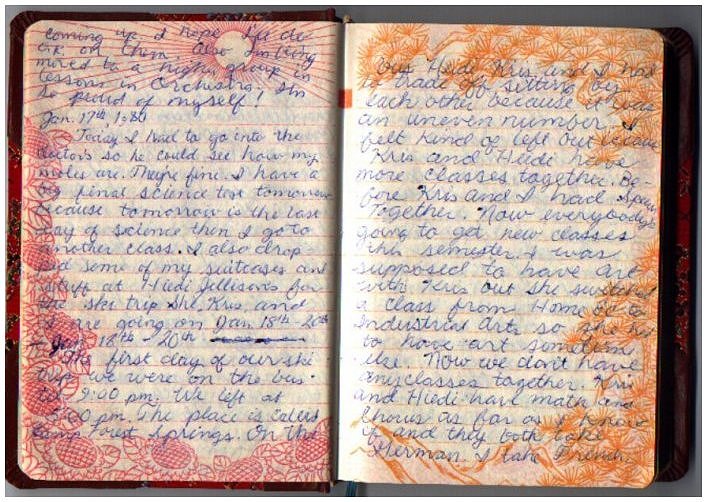 coming up. I hope I'll do
o.k. on them. Also I'm being
moved to a higher group in
lessons in Orchestra. I'm
so proud of myself!
Jan. 17th, 1980
Today I had to go into the
doctors so he could see how my
moles are. They're fine. I have a
big final science test tomorrow
because tomorrow is the last
day of science then I go to
another class. I also drop-
ped some of my suitcases and
stuff at Hiedi Jellison's for
the ski trip she, Kris, and
I are going on Jan. 18th - 20th
Jan. 18th - 20th
The first day of our ski
trip we were on the bus
til 9:00 pm. We left at
5:00 pm. The place is called
Camp Forest Springs. On the
bus Hiedi, Kris and I had
to trade off sitting by
each other because it was
an uneven number. I
felt kind of left out because
Kris and Hiedi have
more classes together. Be-
fore Kris and I had
together. Now everybody's
going to get new classes
this semester. I was
supposed to have art
with Kris but she switched
a class from Home Ec to
Industrial Arts so she has
to have art sometime
else. Now we don't have
any classes together. Kris
and Hiedi have math and
chorus as far as I know
if and they both take
German. I take French